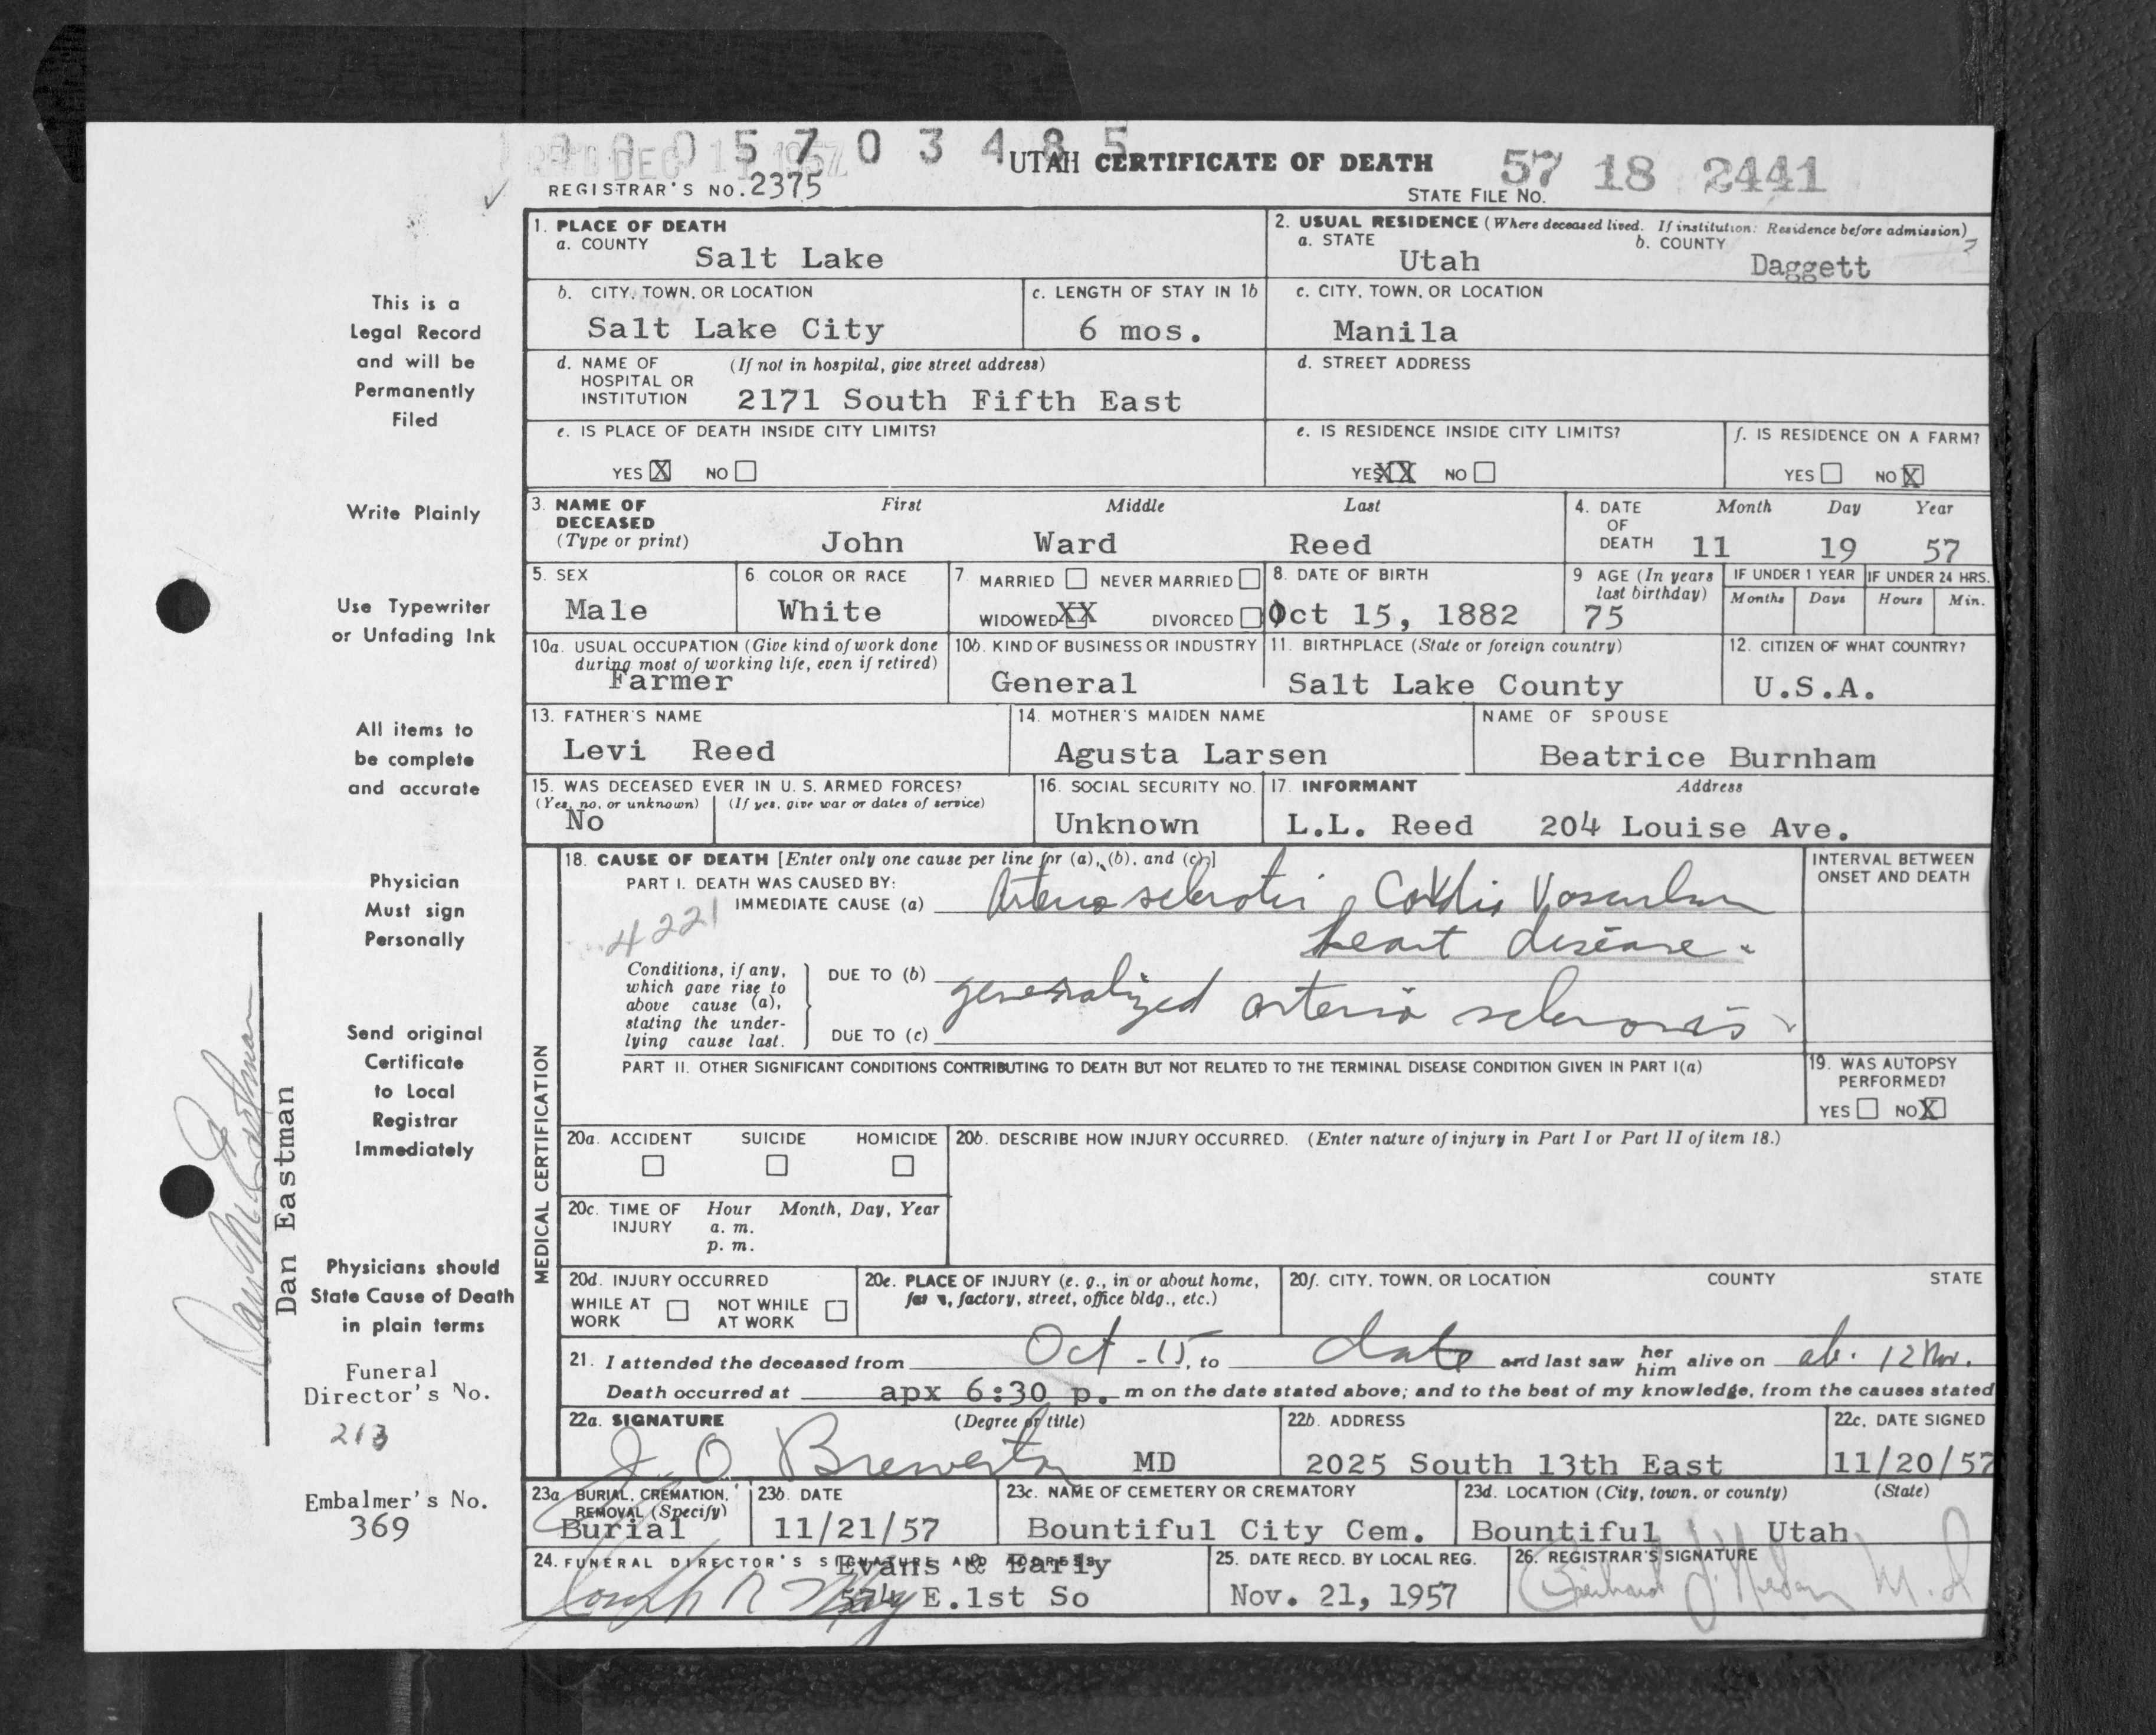 0005703485
REC'D DEC 11 1957
UTAH CERTIFICATE OF DEATH
57 18 2441
REGISTRAR'S NO. 2375
STATE FILE NO.
This is a
Legal Record
and will be
Permanently
Filed
Write Plainly
Use Typewriter
or Unfading Ink
All items to
be complete
and accurate
Physician
Must sign
Personally
Send original
Certificate
to Local
Registrar
Immediately
Physicians should
State Cause of Death
in plain terms
Funeral
Director's No.
213
Embalmer's No.
369
Dan Eastman
1. PLACE OF DEATH
a. COUNTY
Salt Lake
2. USUAL RESIDENCE (Where deceased lived. If institution: Residence before admission)
a. STATE
Utah
b. COUNTY
Daggett
b. CITY, TOWN, OR LOCATION
Salt Lake City
c. LENGTH OF STAY IN 1b
6 mos.
c. CITY, TOWN, OR LOCATION
Manila
d. NAME OF HOSPITAL OR INSTITUTION
(If not in hospital, give street address)
2171 South Fifth East
d. STREET ADDRESS
e. IS PLACE OF DEATH INSIDE CITY LIMITS?
YES X NO
e. IS RESIDENCE INSIDE CITY LIMITS?
YES XX NO
f. IS RESIDENCE ON A FARM?
YES NO X
3. NAME OF DECEASED
(Type or print)
First Middle Last
John Ward Reed
4. DATE OF DEATH
Month Day Year
11 19 57
5. SEX
Male
6. COLOR OR RACE
White
7. MARRIED NEVER MARRIED
WIDOWED XX DIVORCED
8. DATE OF BIRTH
Oct 15, 1882
9 AGE (In years last birthday)
75
IF UNDER 1 YEAR
Months Days
IF UNDER 24 HRS.
Hours Min.
10a. USUAL OCCUPATION (Give kind of work done during most of working life, even if retired)
Farmer
10b. KIND OF BUSINESS OR INDUSTRY
General
11. BIRTHPLACE (State or foreign country)
Salt Lake County
12. CITIZEN OF WHAT COUNTRY?
U.S.A.
13. FATHER'S NAME
Levi Reed
14. MOTHER'S MAIDEN NAME
Agusta Larsen
NAME OF SPOUSE
Beatrice Burnham
15. WAS DECEASED EVER IN U. S. ARMED FORCES?
(Yes, no, or unknown) (If yes, give war or dates of service)
No
16. SOCIAL SECURITY NO.
Unknown
17. INFORMANT Address
L.L. Reed 204 Louise Ave.
MEDICAL CERTIFICATION
18. CAUSE OF DEATH [Enter only one cause per line for (a), (b), and (c).]
PART I. DEATH WAS CAUSED BY:
IMMEDIATE CAUSE (a)
Arterio sclerotic Cardio Vascular
heart disease.
4221
Conditions, if any, which gave rise to above cause (a), stating the underlying cause last.
DUE TO (b)
generalized arterio sclerosis
DUE TO (c)
INTERVAL BETWEEN ONSET AND DEATH
PART II. OTHER SIGNIFICANT CONDITIONS CONTRIBUTING TO DEATH BUT NOT RELATED TO THE TERMINAL DISEASE CONDITION GIVEN IN PART I(a)
19. WAS AUTOPSY PERFORMED?
YES NO X
20a. ACCIDENT SUICIDE HOMICIDE
20b. DESCRIBE HOW INJURY OCCURRED. (Enter nature of injury in Part I or Part II of item 18.)
20c. TIME OF INJURY
Hour Month, Day, Year
a. m.
p. m.
20d. INJURY OCCURRED
WHILE AT WORK NOT WHILE AT WORK
20e. PLACE OF INJURY (e. g., in or about home, farm, factory, street, office bldg., etc.)
20f. CITY, TOWN, OR LOCATION COUNTY STATE
21. I attended the deceased from Oct - 15, to date and last saw her him alive on ab. 12 Nov.
Death occurred at apx 6:30 p. m on the date stated above; and to the best of my knowledge, from the causes stated
22a. SIGNATURE (Degree or title)
J. O. Brewerton MD
22b. ADDRESS
2025 South 13th East
22c. DATE SIGNED
11/20/57
23a. BURIAL, CREMATION, REMOVAL (Specify)
Burial
23b. DATE
11/21/57
23c. NAME OF CEMETERY OR CREMATORY
Bountiful City Cem.
23d. LOCATION (City, town, or county) (State)
Bountiful Utah
24. FUNERAL DIRECTOR'S SIGNATURE AND ADDRESS
Evans & Early
574 E.1st So
25. DATE RECD. BY LOCAL REG.
Nov. 21, 1957
26. REGISTRAR'S SIGNATURE
M.D